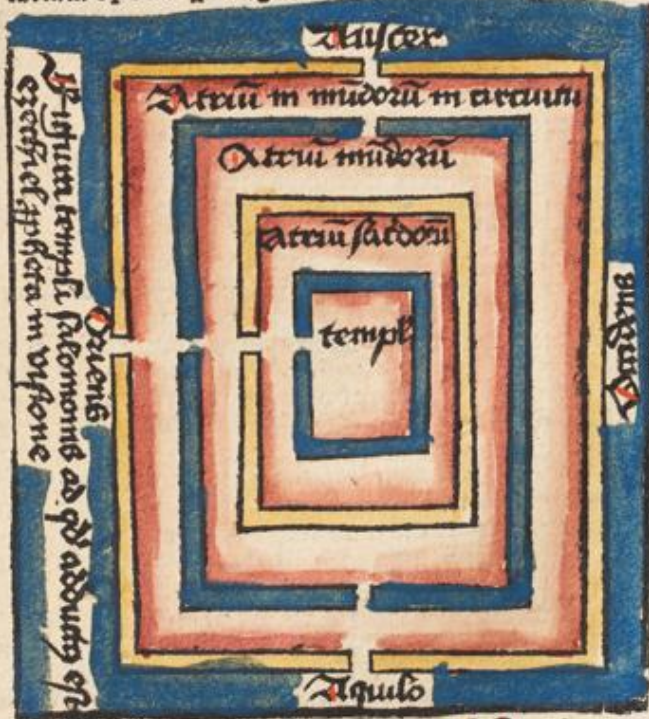 Auster
Atriū in mūdorū in circuitu
Atriū mūdorū
Atriū sacdorū
templ
Oriens
Occidens
Aquilo
Figura templi salomonis ad qd adductꝰ est
ezechiel ꝓpheta in visione